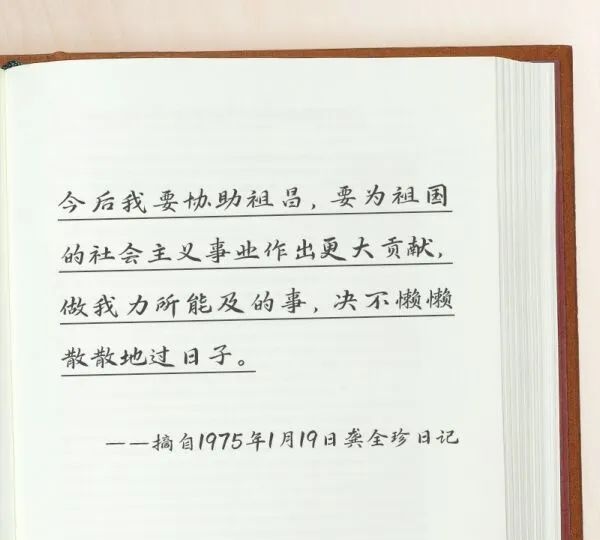 今后我要协助祖昌，要为祖国
的社会主义事业作出更大贡献，
做我力所能及的事，决不懒懒
散散地过日子。
——摘自1975年1月19日龚全珍日记